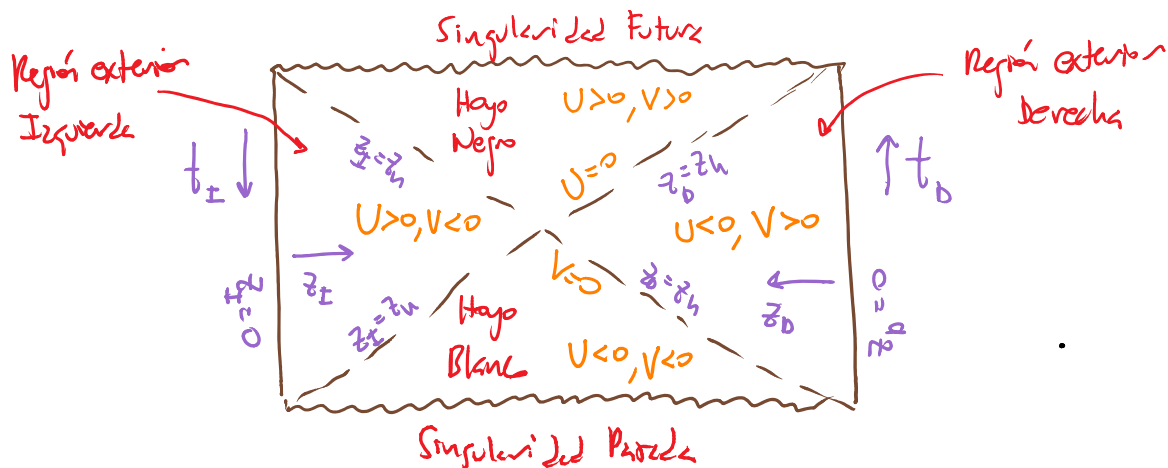 Singularidad Futura
Región exterior
Izquierda
Región exterior
Derecha
Hoyo
Negro
U>0, V>0
t_I
z_I=z_h
U=0
z_D=z_h
t_D
U>0, V<0
U<0, V>0
z_I
z_I=0
V=0
z_D=z_h
z_D
z_D=0
z_I=z_h
Hoyo
Blanco
U<0, V<0
Singularidad Pasada